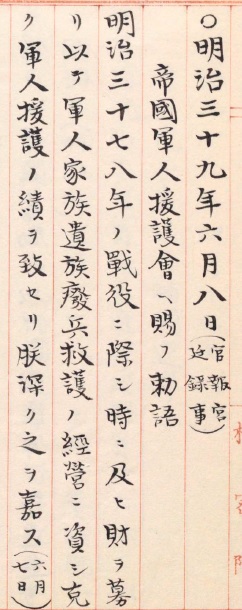 〇明治三十九年六月八日(官報宮廷録事)
帝國軍人援護會ヘ賜フ勅語
明治三十七八年ノ戰役ニ際シ時ニ及ヒ財ヲ募
リ以テ軍人家族遺族癈兵救護ノ經營ニ資シ克
ク軍人援護ノ績ヲ致セリ朕深ク之ヲ嘉ス(六月七日)